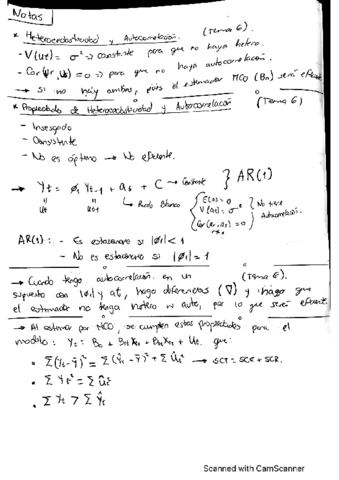 Notas
* Heterocedasticidad y Autocorrelación. (Tema 6)
- V(Ut) = σ² → constante para que no haya hetero.
- Cov(Ur, Us) = 0 → para que no haya autocorrelación.
→ Si no hay ambas, el estimador MCO (Bn) será eficiente
* Propiedades de Heterocedasticidad y Autocorrelación (Tema 6)
- Insesgado
- Consistente
- No es óptimo → No eficiente.
→ Yt = φ₁ Yt-1 + at + C → Constante } AR(1)
Ut Ut-1 → Ruido Blanco { E(at) = 0
V(at) = σ² No tiene
Cov(ar, as) = 0 Autocorrelación.
r≠s
AR(1): - Es estacionario si |φ₁| < 1
- No es estacionario si |φ₁| = 1
→ Cuando tengo autocorrelación en un (Tema 6).
supuesto con |φ₁| y at, hago diferencias (∇) y hago que
el estimador no tenga hetero ni auto, por lo que será eficiente.
→ Al estimar por MCO, se cumplen estas propiedades para el
modelo: Yt = Bo + B1tX1t + B2tX2t + Ut. que:
• Σ(Yt - Ȳ)² = Σ(Ŷt - Ȳ)² + Σ Ût² → SCT = SCE + SCR.
• Σ Yt² = Σ Ût²
• Σ Yt > Σ Ŷt
Scanned with CamScanner